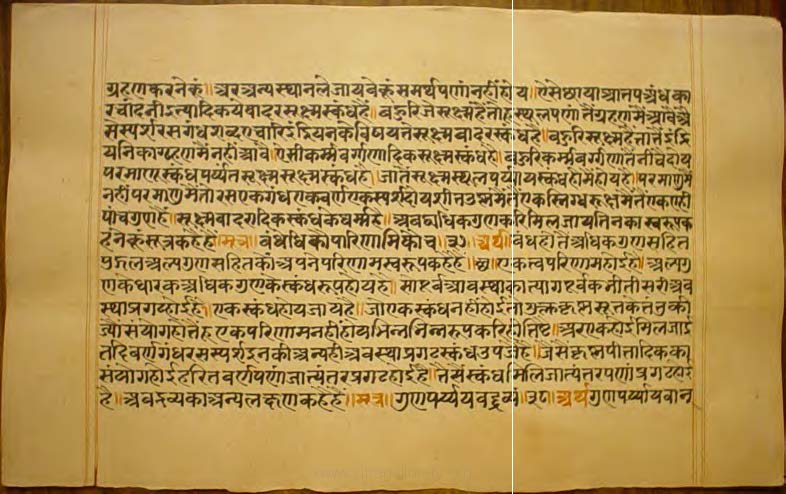 ग्रहणकरनेकूं॥ अरअन्यस्थानलेजायवेकूंसमर्थपणांनहींहोय॥ ऐसेछायाआतपअंधका
रचांदनीइत्यादिकयेबादरसूक्ष्मस्कंधहै॥ बहुरिजेसूक्ष्महैतौहूस्थूलपणांतैग्रहणमेंआवेअै
सेस्पर्शरसगंधशब्दएचारिइंद्रियनकेविषयतेसूक्ष्मबादरस्कंधहै॥ बहुरिसूक्ष्महैतातेइंद्रि
यनिकाग्रहणमेंनहींआवे॥ एसीकर्म्मवर्गणादिकसूक्ष्मस्कंधहै॥ बहुरिकर्म्मवर्गणातैनीचैदोय
परमाणुस्कंधपर्यंतसूक्ष्मसूक्ष्मस्कंधहै॥ जातैसूक्ष्मस्थूलपर्य्यायस्कंधहीमेंहोयहै॥ परमाणुमें
नहींपरमाणुमेंतोरसएकगंधएकवर्णएकस्पर्शदोयशीतउष्णमेंतैएकस्निग्धरूक्षमेंतेएकएही
पांचगुणहै॥ सूक्ष्मबादरादिकस्कंधकेधर्म्महै॥ अबद्व्यधिकगुणकरिमिलिजायतिनकास्वरूपक
हनेकूंसूत्रकहेहै॥ सूत्र॥ बंधेधिकौपारिणामिकौच॥३७॥ अर्थ॥ बंधहोतेंअधिकगुणसहित
पुद्गलअल्पगुणसहितकोंअपनेपरिणामस्वरूपकरेहै॥ एकत्वपरिणमहोइहै॥ अल्पगु
णकेधारकअधिकगुणकेस्कंधरूपहोयहै॥ पूर्वअवस्थाकात्यागपूर्वकतीतीसरीअव
स्थाप्रगटहोईहै॥ एकस्कंधहोयजायहै॥ जोएकस्कंधनहींहोईतौशुक्लकृष्णसूतकेतंतुकी
ज्योंसंयोगहोतेंहूएकपरिणामनहींहोयभिन्नभिन्नरूपकरिहीतिष्ठै॥ अरएकहोइमिलजाइ
तदिवर्णगंधरसस्पर्शइनकीअन्यहीअवस्थाप्रगटस्कंधउपजेहै॥ जैसेंकृष्णपीतादिकका
संयोगहोईहरितवर्णपणांजात्यंतरप्रगटहोइहै॥ तैसेंस्कंधमिलिजात्यंतरपणांप्रगटहोइ
है॥ अबद्रव्यकाअन्यलक्षणकहैहै॥ सूत्र॥ गुणपर्य्ययवद्द्रव्यं॥३८॥ अर्थ गुणपर्य्यायवान्